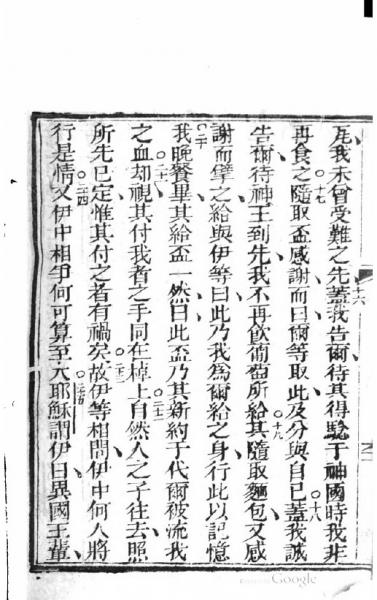 瓦我未曾受難之先蓋我告爾待其得騐于神國時我非
十六
再食之隨取盃感謝而曰爾等取此及分與自已蓋我誠
十七
十八
告爾待神王到先我不再飲葡萄所給其隨取麵包又感
十九
謝而擘之給與伊等曰此乃我為爾給之身行此以記憶
二十
我晚餐畢其給盃一然曰此盃乃其新約于代爾被流我
二十一
之血却視其付我者之手同在棹上自然人之子往去照
二十二
所先已定惟其付之者有禍矣故伊等相問伊中何人將
二十三
行是情又伊中相爭何可算至大耶穌謂伊曰異國王輩
二十四
二十五
Google